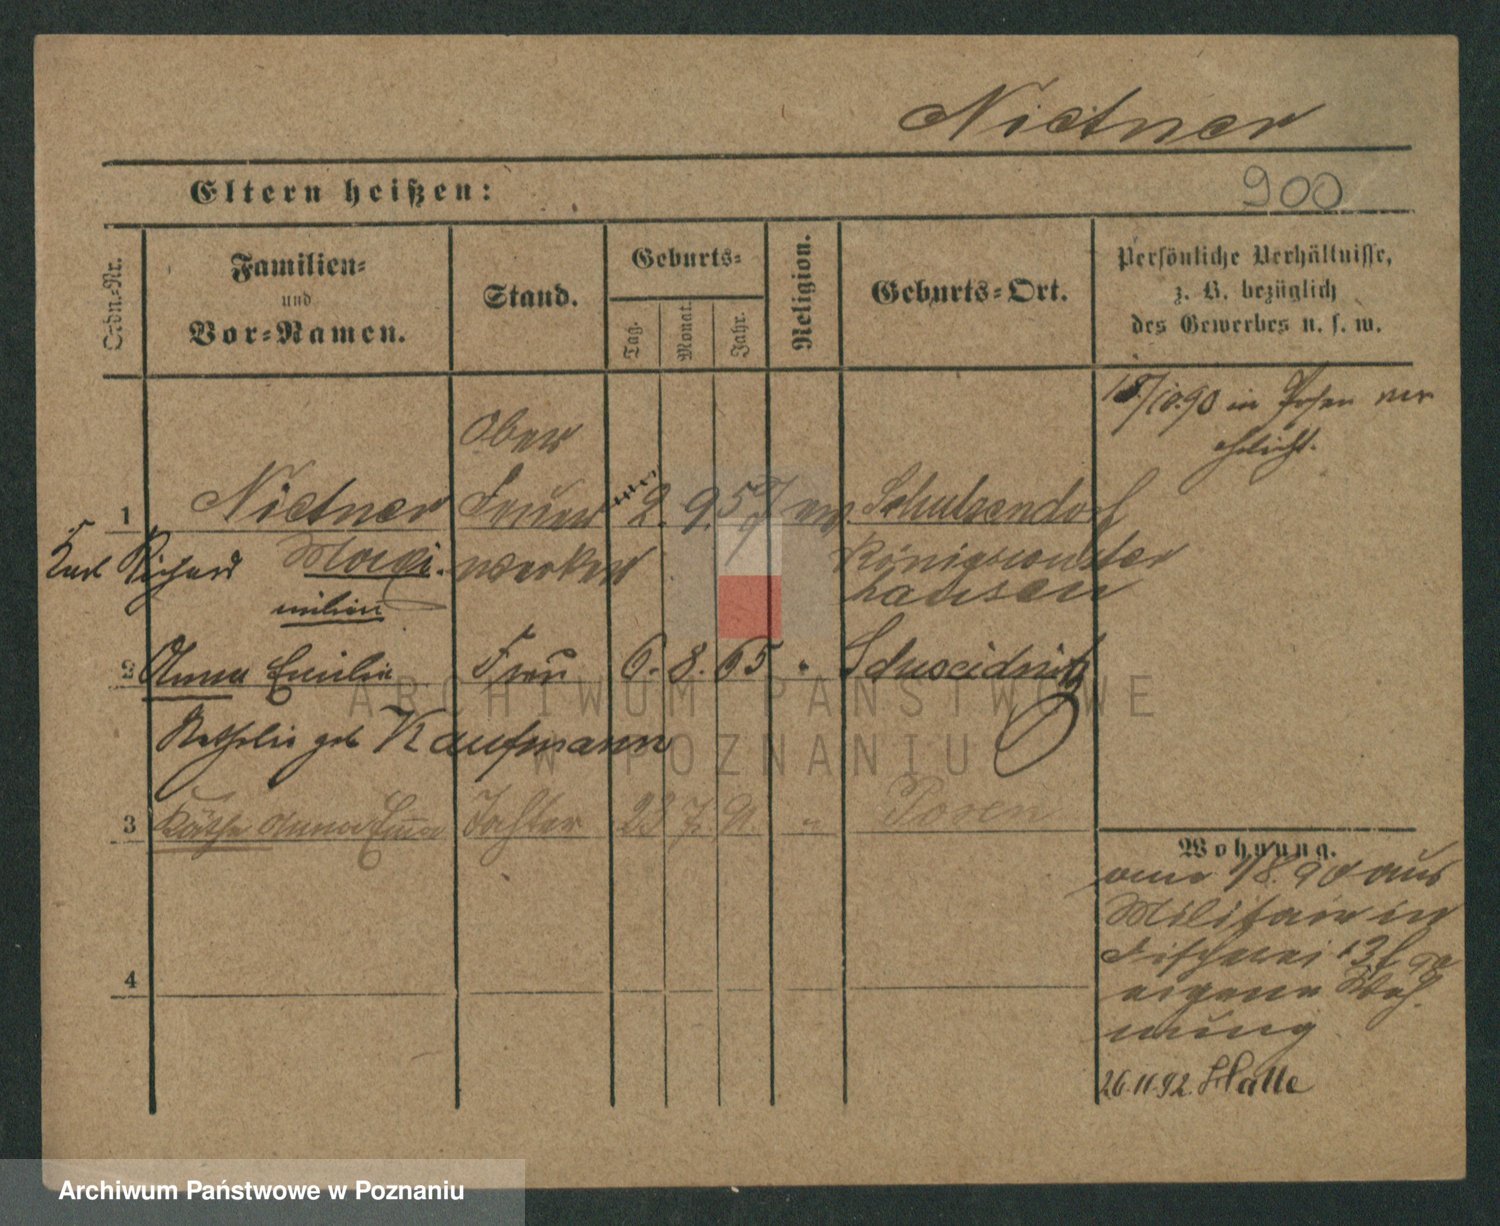 Nietner
900
Eltern heißen:
Ordn.-Nr.
Familien-
und
Vor-Namen.
Stand.
Geburts-
Tag.
Monat.
Jahr.
Religion.
Geburts-Ort.
Persönliche Verhältnisse,
z. B. bezüglich
des Gewerbes u. s. w.
18/10.90 in Posen ver
ehelicht.
Ober
1 Nietner Feuer 2. 9. 57 ev. Schulzendorf
Karl Richard Maxi- werker Königswuster
milian hausen
2 Anna Emilie Frau 6. 8. 65 " Schweidnitz
Kathalie geb Kaufmann
3 Käthe Anna Emma Tochter 23 7. 91. " Posen
4
Wohnung.
1/8. 90 aus
Militair in
Fischerei 13
eigene Woh
nung
26.11.92. Halle
ARCHIWUM PAŃSTWOWE
W POZNANIU
Archiwum Państwowe w Poznaniu